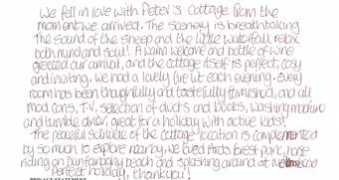 We fell in love with Peter's cottage from the
moment we arrived. The scenery is breathtaking
The sound of the sheep and the little waterfall relax
both mind and soul! A warm welcome and bottle of wine
greeted our arrival, and the cottage itself is perfect, cosy
and inviting. we had a lovely fire lit each evening. every
room has been thoughtfully and tastefully furnished, and all
mod cons, T.V, selection of duds and books, washing machine
and tumble drier, great for a holiday with active kids!
The peaceful solitude of the cottage location is complemented
by so much to explore nearby, we biked Ards forest park, horse
riding on Dunfanaghy beach and splashing around at
Perfect holiday, thankyou!